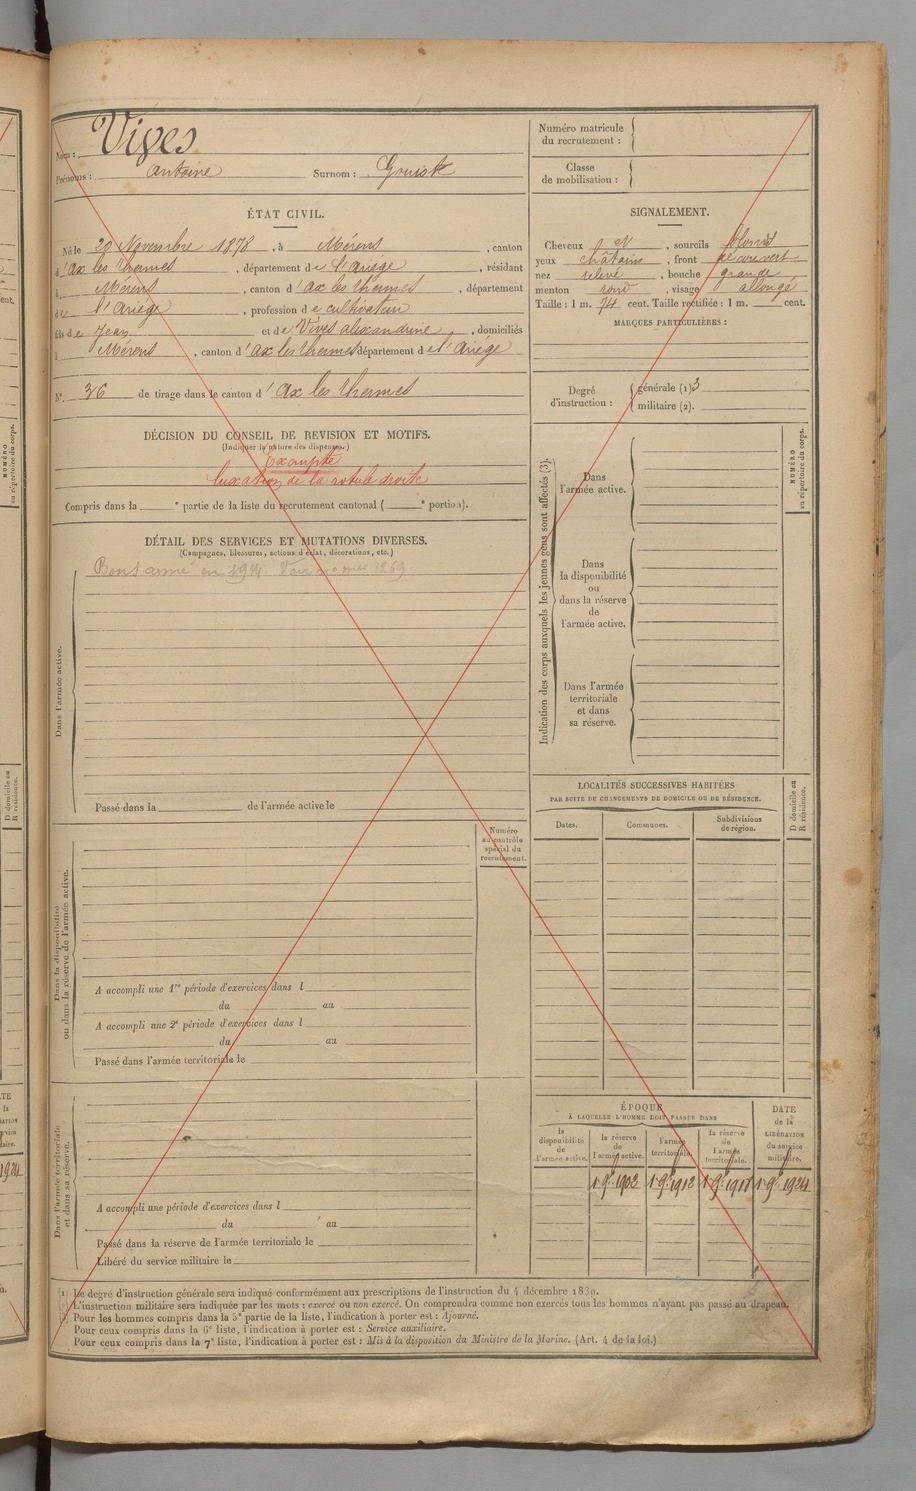 Nom : Vives
Prénoms : Antoine Surnom :
ÉTAT CIVIL.
Né le 20 Novembre 1878, à Mérens, canton
d'Ax les thermes, département de l'Ariège, résidant
à Mérens, canton d'Ax les thermes, département
de l'Ariège, profession de cultivateur
fils de Jean et de Vives alexandrine, domiciliés
à Mérens, canton d'Ax les thermes département de l'Ariége
N° 36 de tirage dans le canton d'Ax les thermes
DÉCISION DU CONSEIL DE REVISION ET MOTIFS.
(Indiquer la nature des dispenses.)
Exempté
luxation de la rotule droite
Compris dans la ° partie de la liste du recrutement cantonal ( ° portion).
DÉTAIL DES SERVICES ET MUTATIONS DIVERSES.
(Campagnes, blessures, actions d'éclat, décorations, etc.)
Bon armé en 1914. Voir 1269
Dans l'armée active.
Passé dans la de l'armée active le
Numéro
au contrôle
spécial du
recrutement.
Dans la disponibilité
ou dans la réserve de l'armée active.
A accompli une 1re période d'exercices dans l
du au
A accompli une 2e période d'exercices dans l
du au
Passé dans l'armée territoriale le
Dans l'armée territoriale
et dans sa réserve.
A accompli une période d'exercices dans l
du au
Passé dans la réserve de l'armée territoriale le
Libéré du service militaire le
Numéro matricule
du recrutement :
Classe
de mobilisation :
SIGNALEMENT.
Cheveux N, sourcils blonds
yeux châtains, front découvert
nez relevé, bouche grande
menton rond, visage allongé
Taille : 1 m. 74 cent. Taille rectifiée : 1 m. cent.
MARQUES PARTICULIÈRES :
Degré
d'instruction :
générale (1) 3
militaire (2).
Indication des corps auxquels les jeunes gens sont affectés (3).
Dans
l'armée active.
Dans
la disponibilité
ou
dans la réserve
de
l'armée active.
Dans l'armée
territoriale
et dans
sa réserve.
NUMÉRO
au répertoire du corps.
LOCALITÉS SUCCESSIVES HABITÉES
PAR SUITE DE CHANGEMENTS DE DOMICILE OU DE RÉSIDENCE.
Dates.
Communes.
Subdivisions
de région.
D domicile ou
R résidence.
ÉPOQUE
À LAQUELLE L'HOMME DOIT PASSER DANS
la
disponibilité
de
l'armée active.
la réserve
de
l'armée active.
l'armée
territoriale.
la réserve
de
l'armée
territoriale.
DATE
de la
LIBÉRATION
du service
militaire.
1 9bre 1902 1 9bre 1912 1 9bre 1918 1 9bre 1924
Le degré d'instruction générale sera indiqué conformément aux prescriptions de l'instruction du 4 décembre 1889.
L'instruction militaire sera indiquée par les mots : exercé ou non exercé. On comprendra comme non exercés tous les hommes n'ayant pas passé au drapeau.
Pour les hommes compris dans la 5e partie de la liste, l'indication à porter est : Ajourné.
Pour ceux compris dans la 6e liste, l'indication à porter est : Service auxiliaire.
Pour ceux compris dans la 7e liste, l'indication à porter est : Mis à la disposition du Ministre de la Marine. (Art. 4 de la loi.)